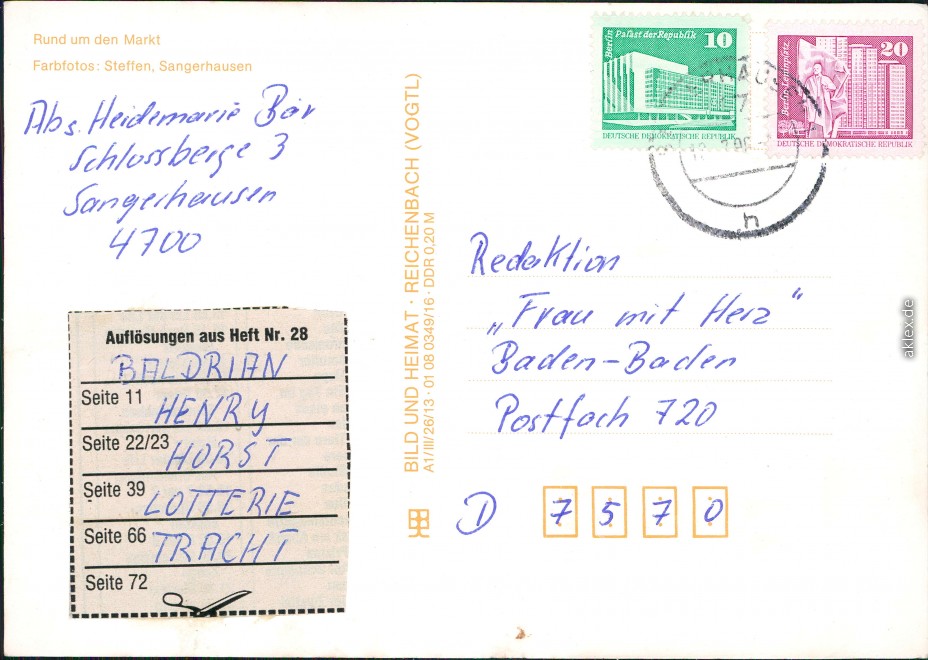 Rund um den Markt
Farbfotos: Steffen, Sangerhausen
Abs. Heidemarie Bär
Schlossberge 3
Sangerhausen
4700
Auflösungen aus Heft Nr. 28
BALDRIAN
Seite 11
HENRY
Seite 22/23
HORST
Seite 39
LOTTERIE
Seite 66
TRACHT
Seite 72
BILD UND HEIMAT · REICHENBACH (VOGTL)
A1/III/26/13 · 01 08 0349/16 · DDR 0,20 M
Berlin Palast der Republik
10
DEUTSCHE DEMOKRATISCHE REPUBLIK
20
DEUTSCHE DEMOKRATISCHE REPUBLIK
h
Redaktion
„Frau mit Herz“
Baden-Baden
Postfach 720
D 7570
aklex.de